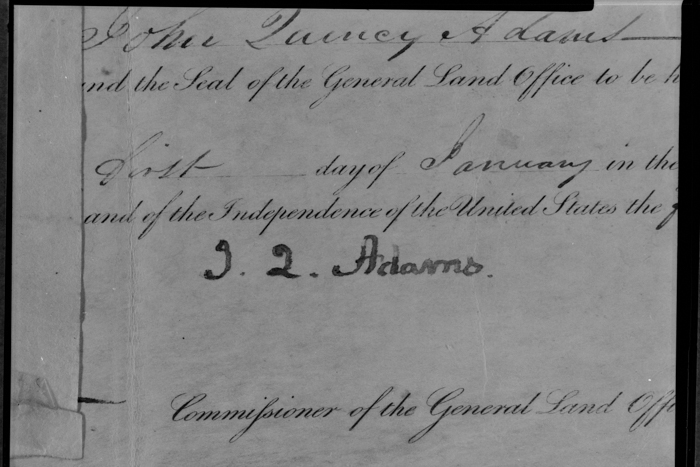 John Quincy Adams
and the Seal of the General Land Office to be
First day of January in the
and of the Independence of the United States the
J. Q. Adams.
Commissioner of the General Land Offi